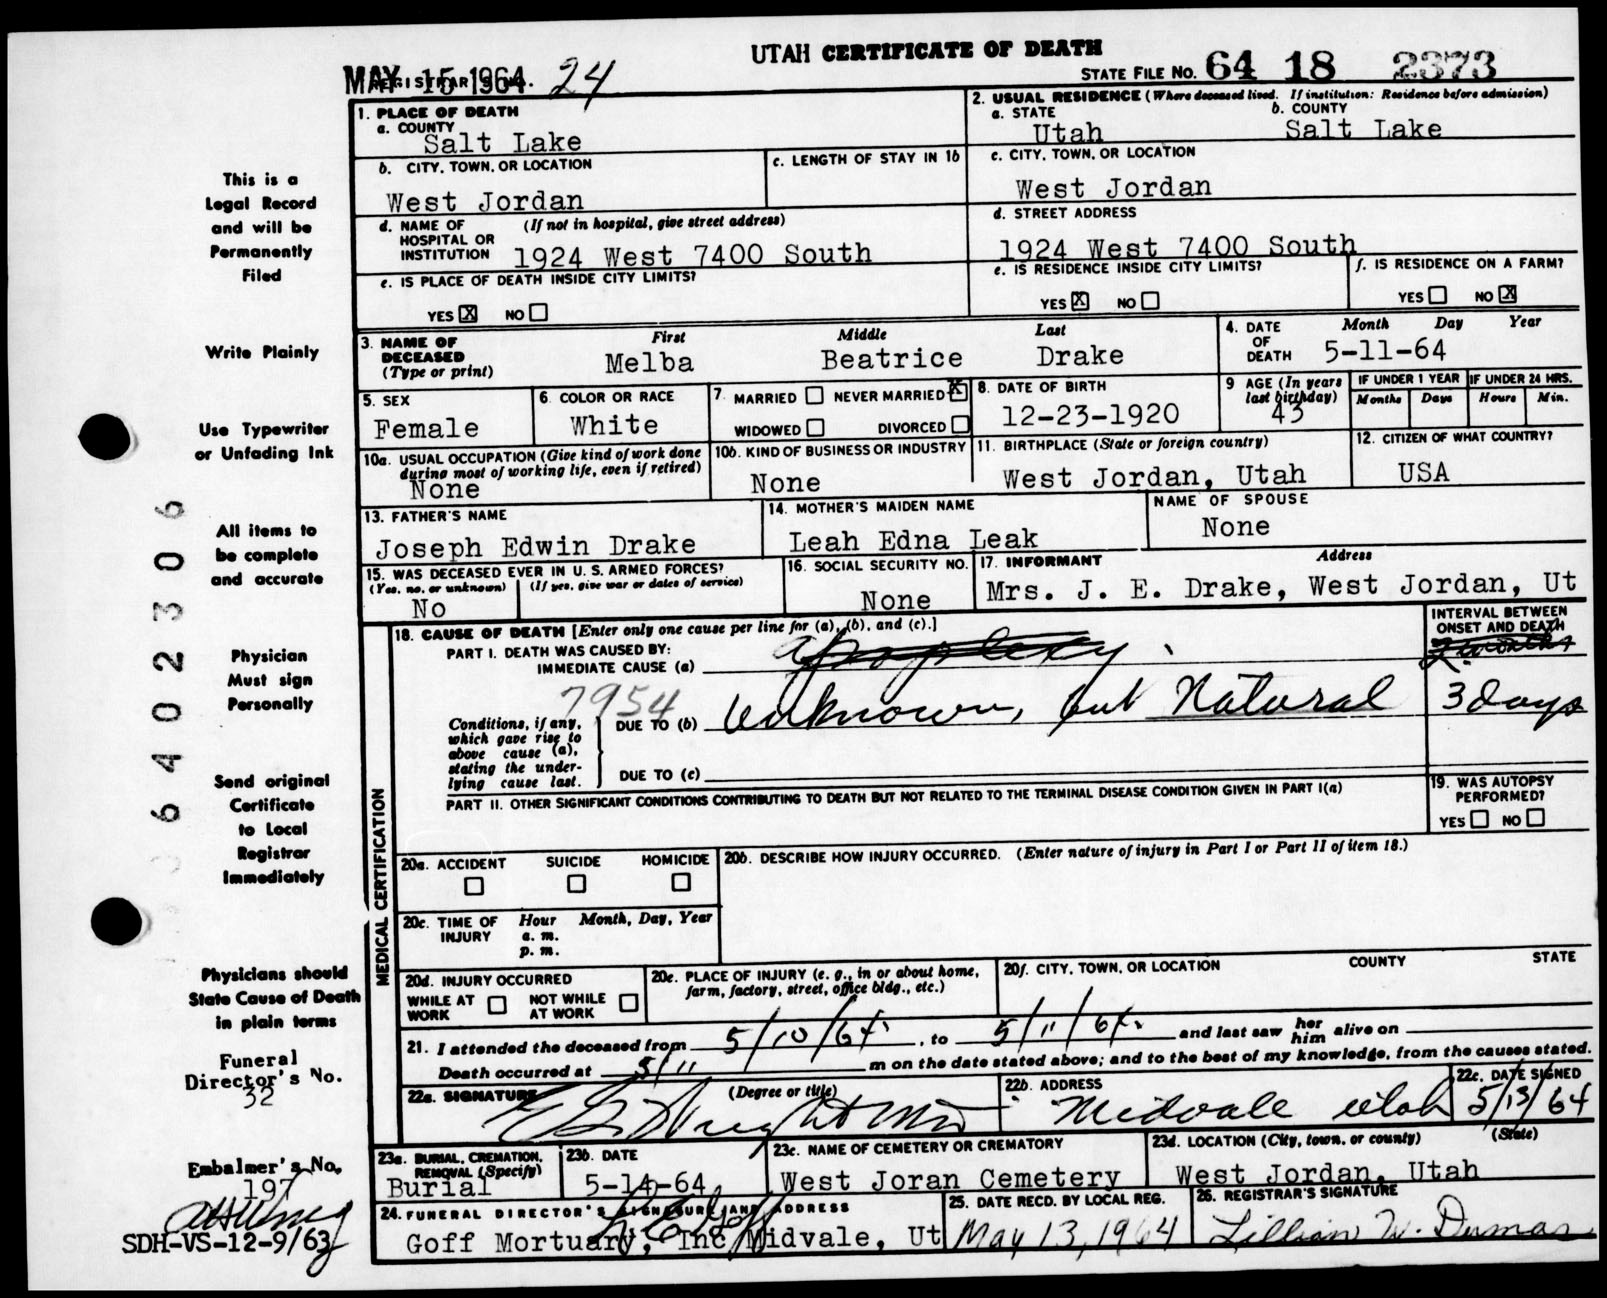 UTAH CERTIFICATE OF DEATH
MAY 15 1964
REGISTRAR'S NO. 24
STATE FILE NO. 64 18 2373
1. PLACE OF DEATH
a. COUNTY
Salt Lake
2. USUAL RESIDENCE (Where deceased lived. If institution: Residence before admission)
a. STATE b. COUNTY
Utah Salt Lake
b. CITY, TOWN, OR LOCATION
West Jordan
c. LENGTH OF STAY IN 1b
c. CITY, TOWN, OR LOCATION
West Jordan
d. NAME OF HOSPITAL OR INSTITUTION (If not in hospital, give street address)
1924 West 7400 South
d. STREET ADDRESS
1924 West 7400 South
e. IS PLACE OF DEATH INSIDE CITY LIMITS?
YES X NO
e. IS RESIDENCE INSIDE CITY LIMITS?
YES X NO
f. IS RESIDENCE ON A FARM?
YES NO X
3. NAME OF DECEASED (Type or print)
First Middle Last
Melba Beatrice Drake
4. DATE OF DEATH Month Day Year
5-11-64
5. SEX
Female
6. COLOR OR RACE
White
7. MARRIED NEVER MARRIED X
WIDOWED DIVORCED
8. DATE OF BIRTH
12-23-1920
9 AGE (In years last birthday)
43
IF UNDER 1 YEAR IF UNDER 24 HRS.
Months Days Hours Min.
10a. USUAL OCCUPATION (Give kind of work done during most of working life, even if retired)
None
10b. KIND OF BUSINESS OR INDUSTRY
None
11. BIRTHPLACE (State or foreign country)
West Jordan, Utah
12. CITIZEN OF WHAT COUNTRY?
USA
13. FATHER'S NAME
Joseph Edwin Drake
14. MOTHER'S MAIDEN NAME
Leah Edna Leak
NAME OF SPOUSE
None
15. WAS DECEASED EVER IN U. S. ARMED FORCES?
(Yes, no, or unknown) (If yes, give war or dates of service)
No
16. SOCIAL SECURITY NO.
None
17. INFORMANT Address
Mrs. J. E. Drake, West Jordan, Ut
MEDICAL CERTIFICATION
18. CAUSE OF DEATH [Enter only one cause per line for (a), (b), and (c).]
INTERVAL BETWEEN ONSET AND DEATH
PART I. DEATH WAS CAUSED BY:
IMMEDIATE CAUSE (a) apoplexy
7954
Conditions, if any, which gave rise to above cause (a), stating the underlying cause last.
DUE TO (b) Unknown, but Natural 3 days
DUE TO (c)
PART II. OTHER SIGNIFICANT CONDITIONS CONTRIBUTING TO DEATH BUT NOT RELATED TO THE TERMINAL DISEASE CONDITION GIVEN IN PART I(a)
19. WAS AUTOPSY PERFORMED?
YES NO
20a. ACCIDENT SUICIDE HOMICIDE
20b. DESCRIBE HOW INJURY OCCURRED. (Enter nature of injury in Part I or Part II of item 18.)
20c. TIME OF INJURY Hour Month, Day, Year
a. m.
p. m.
20d. INJURY OCCURRED
WHILE AT WORK NOT WHILE AT WORK
20e. PLACE OF INJURY (e. g., in or about home, farm, factory, street, office bldg., etc.)
20f. CITY, TOWN, OR LOCATION COUNTY STATE
21. I attended the deceased from 5/10/64, to 5/11/64 and last saw her him alive on
Death occurred at 5/11 m on the date stated above; and to the best of my knowledge, from the causes stated.
22a. SIGNATURE (Degree or title)
22b. ADDRESS
Midvale Utah
22c. DATE SIGNED
5/13/64
23a. BURIAL, CREMATION, REMOVAL (Specify)
Burial
23b. DATE
5-14-64
23c. NAME OF CEMETERY OR CREMATORY
West Joran Cemetery
23d. LOCATION (City, town, or county) (State)
West Jordan, Utah
24. FUNERAL DIRECTOR'S SIGNATURE AND ADDRESS
Goff Mortuary, Inc Midvale, Ut
25. DATE RECD. BY LOCAL REG.
May 13, 1964
26. REGISTRAR'S SIGNATURE
Lillian W. Dumas
This is a
Legal Record
and will be
Permanently
Filed
Write Plainly
Use Typewriter
or Unfading Ink
All items to
be complete
and accurate
Physician
Must sign
Personally
Send original
Certificate
to Local
Registrar
Immediately
Physicians should
State Cause of Death
in plain terms
Funeral
Director's No.
32
Embalmer's No.
197
SDH-VS-12-9/63
6402306